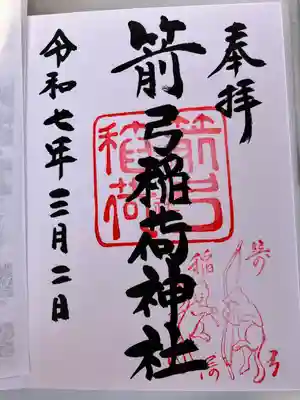 奉拝
箭弓稲荷神社
箭弓
稲荷
令和七年三月二日